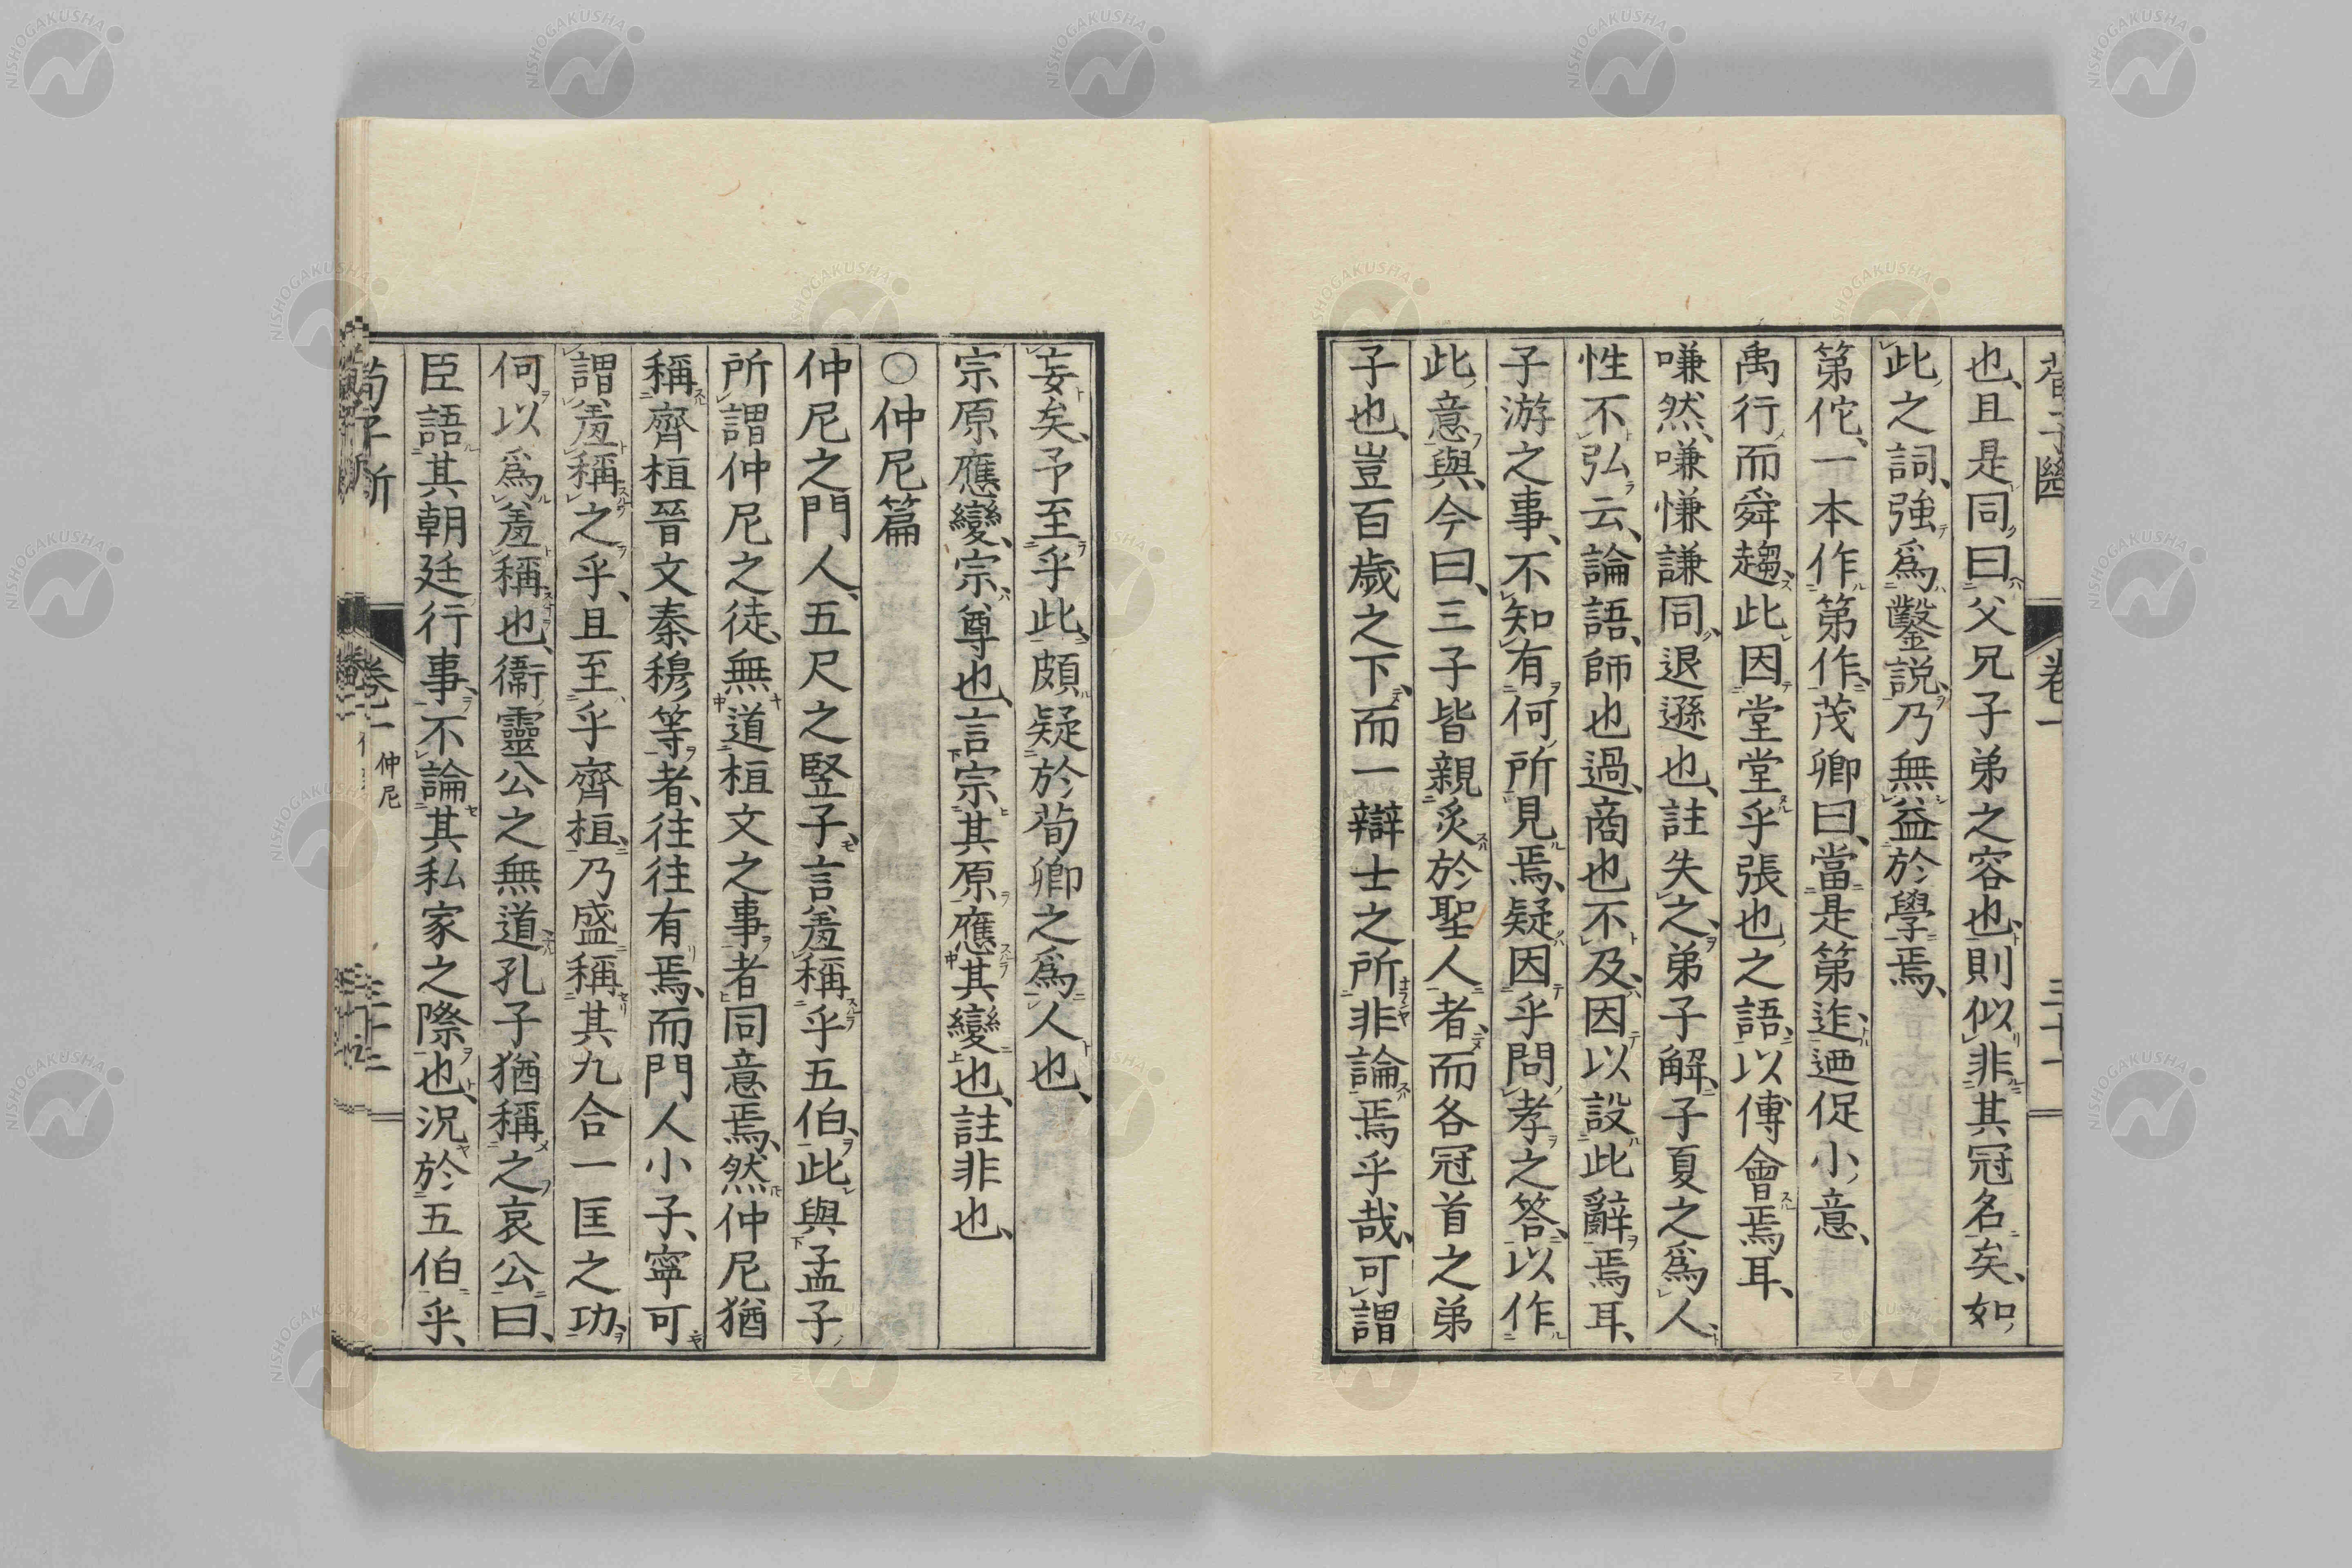 也、且是同、曰父兄子弟之容也、則似非其冠名矣、如
此之詞、強爲鑿説、乃無益於學焉、
第佗、一本作第作、茂卿曰、當是第迮、迺促小意、
禹行而舜趨、此因堂堂乎張也之語、以傅會焉耳、
嗛然、嗛慊謙同、退遜也、註失之、弟子解、子夏之爲人、
性不弘云、論語、師也過、商也不及、因以設此辭焉耳、
子游之事、不知有何所見焉、疑因乎問孝之答、以作
此意與、今曰、三子皆親炙於聖人者、而各冠首之弟
子也、豈百歲之下、而一辯士之所非論焉乎哉、可謂
卷一
三十一
妄矣、予至乎此、頗疑於荀卿之爲人也、
宗原應變、宗尊也、言宗其原應其變也、註非也、
○仲尼篇
仲尼之門人、五尺之豎子、言羞稱乎五伯、此與孟子
所謂仲尼之徒、無道桓文之事者同意焉、然仲尼猶
稱齊桓晉文秦穆等者、往往有焉、而門人小子、寧可
謂羞稱之乎、且至乎齊桓、乃盛稱其九合一匡之功、
何以爲羞稱也、衞靈公之無道孔子猶稱之哀公曰、
臣語其朝廷行事、不論其私家之際也、況於五伯乎、
荀子斷
卷一
仲尼
三十二
NISHOGAKUSHA